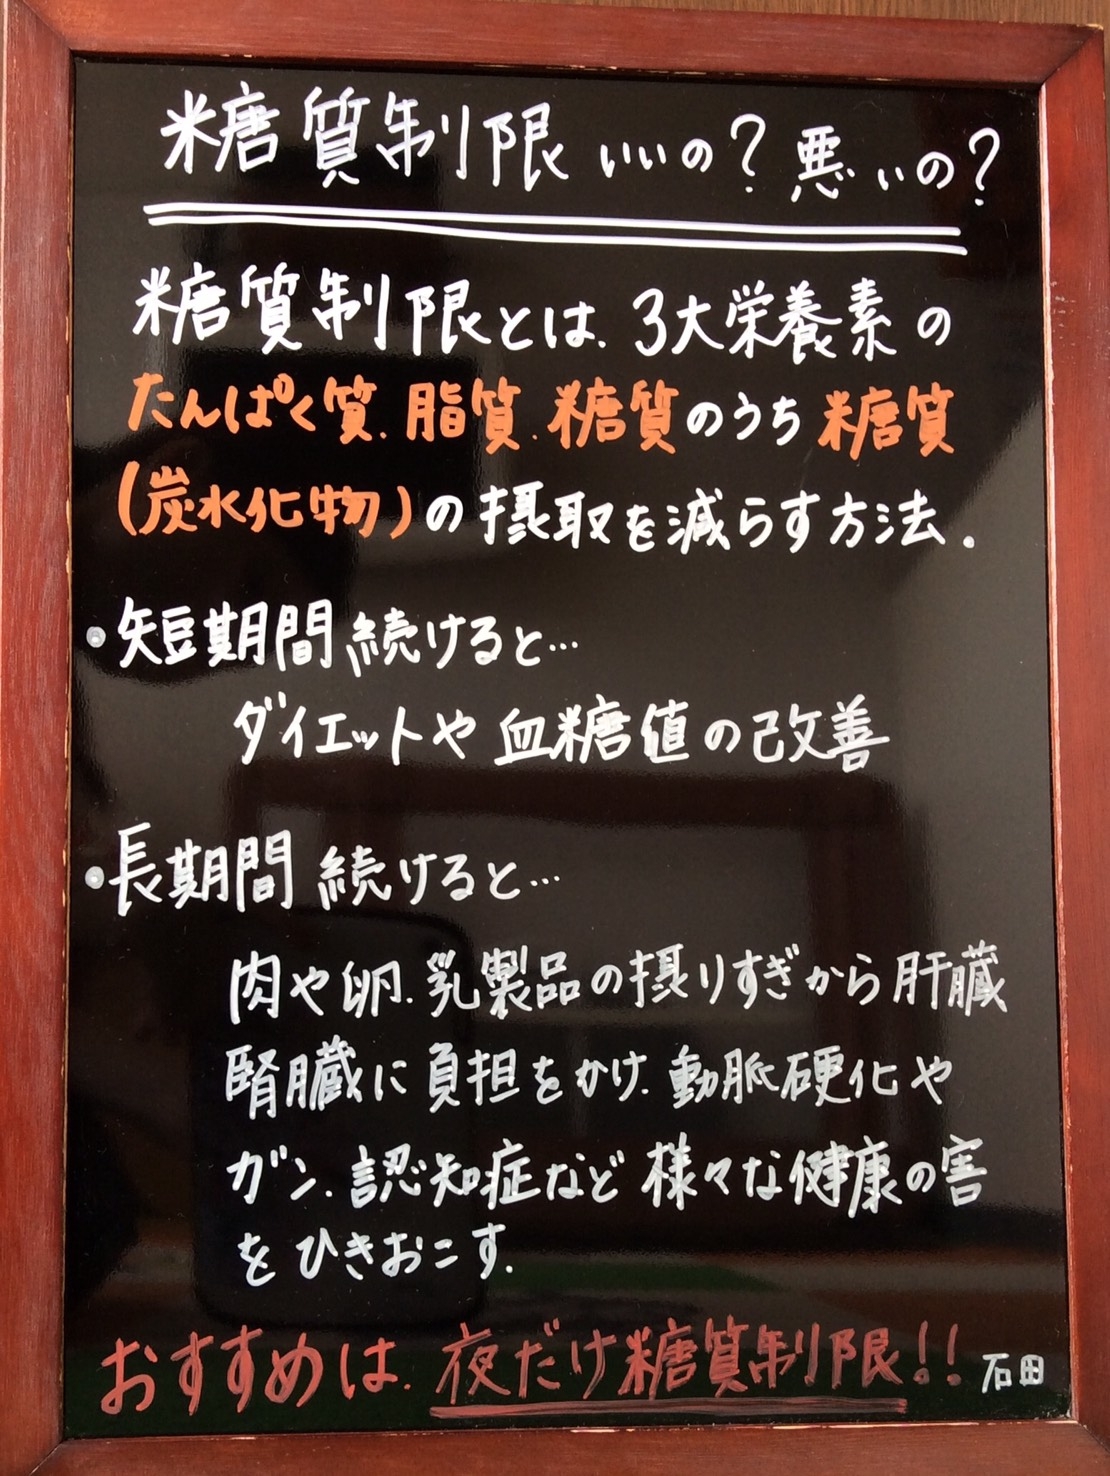 糖質制限 いいの？悪いの？
糖質制限とは、3大栄養素の
たんぱく質、脂質、糖質のうち糖質
(炭水化物)の摂取を減らす方法。
・短期間続けると…
ダイエットや血糖値の改善
・長期間続けると…
肉や卵、乳製品の摂りすぎから肝臓
腎臓に負担をかけ、動脈硬化や
ガン、認知症など様々な健康の害
をひきおこす。
おすすめは、夜だけ糖質制限!! 石田